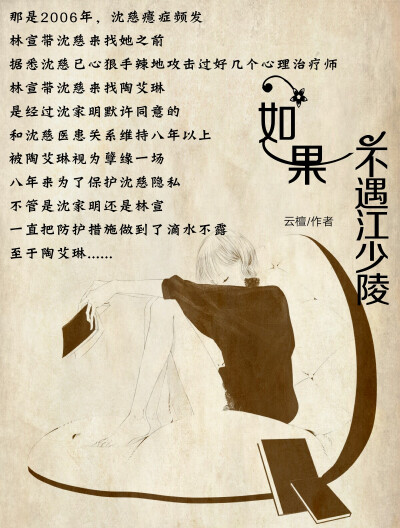 那是2006年，沈慈癔症频发
林宣带沈慈来找她之前
据悉沈慈已心狠手辣地攻击过好几个心理治疗师
林宣带沈慈来找陶艾琳
是经过沈家明默许同意的
和沈慈医患关系维持八年以上
被陶艾琳视为孽缘一场
八年来为了保护沈慈隐私
不管是沈家明还是林宣
一直把防护措施做到了滴水不露
至于陶艾琳……
如果
不遇江少陵
云檀/作者